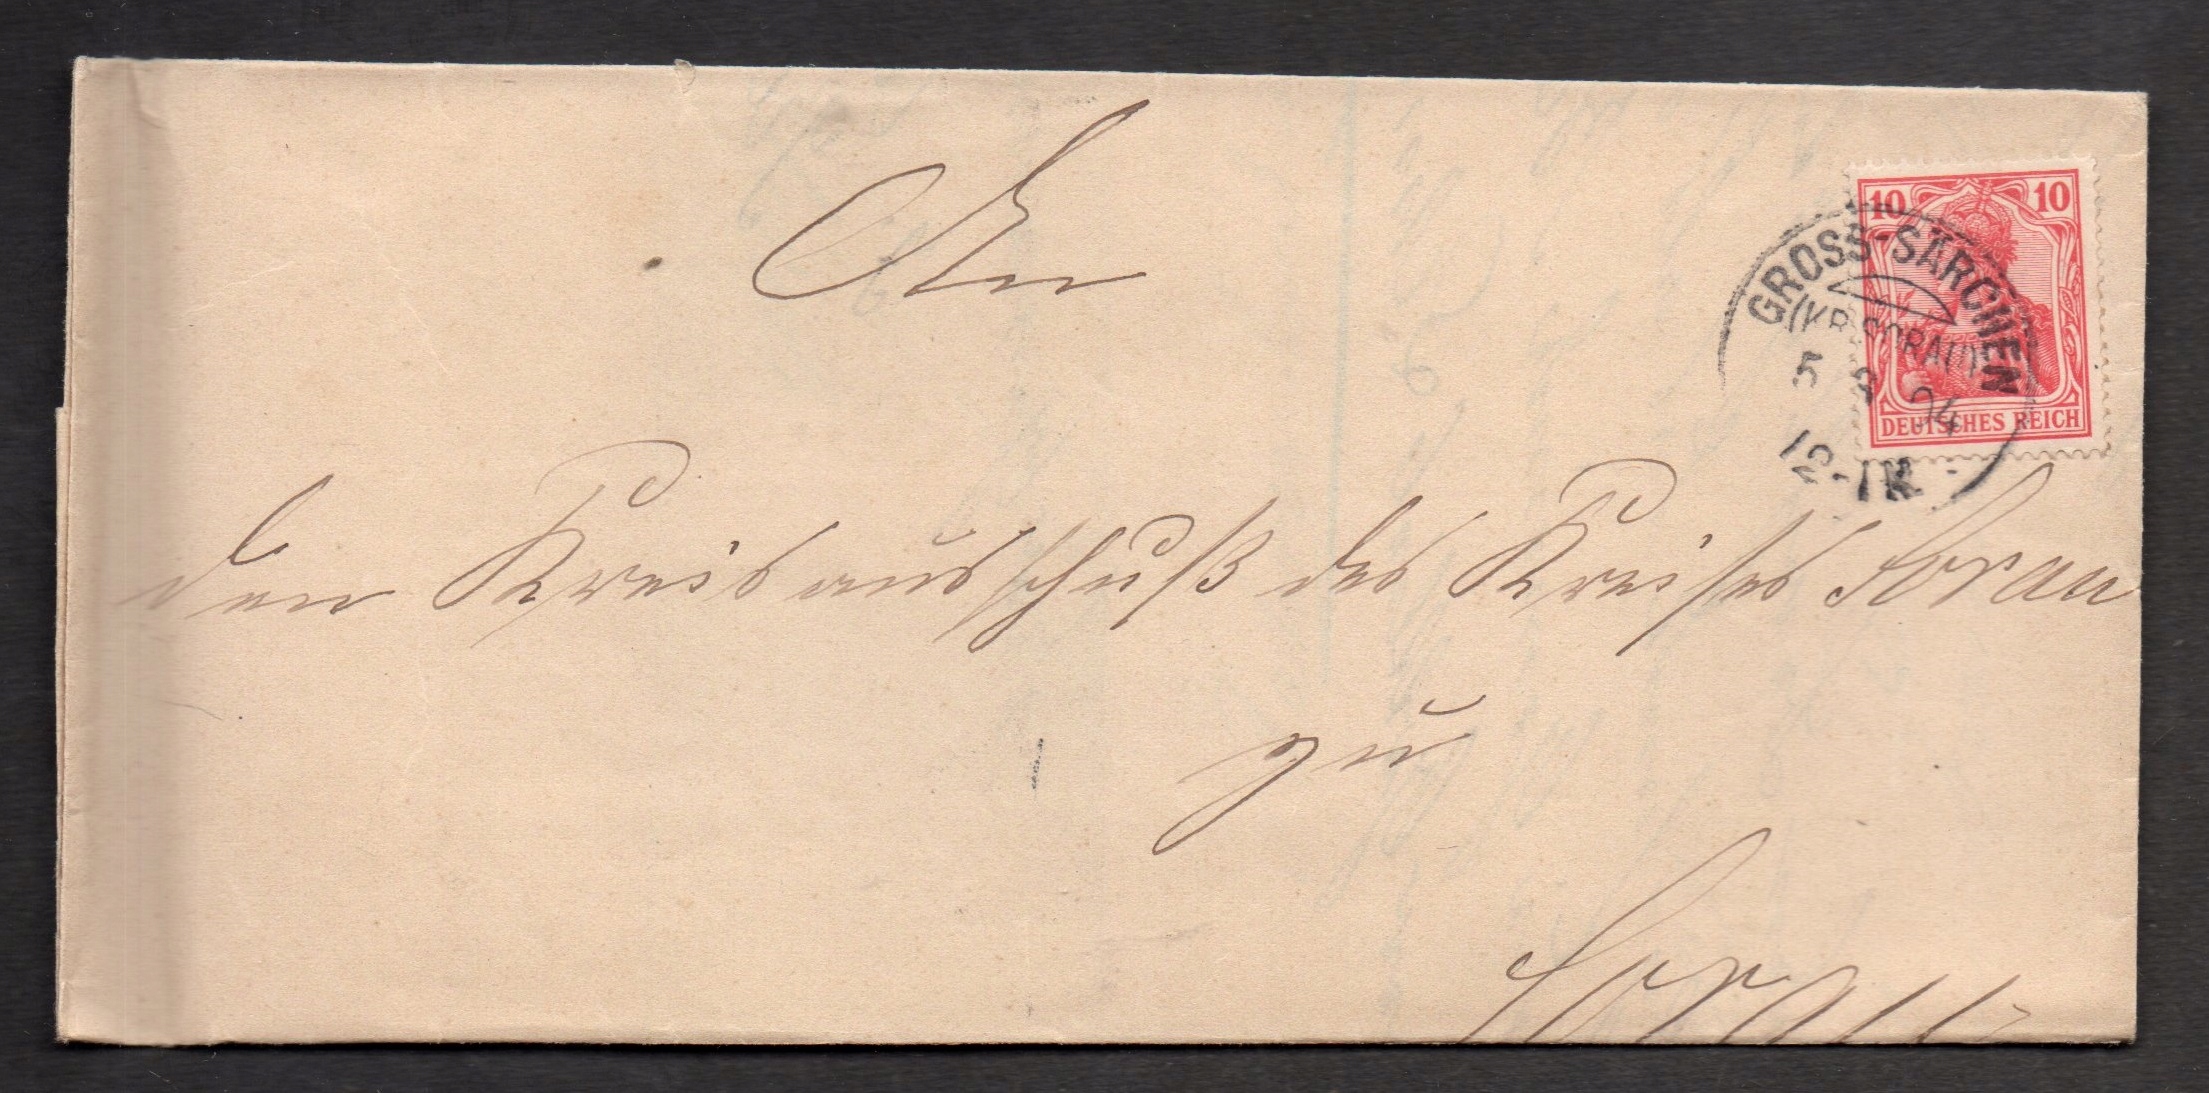 An
10 10
GROSS-SÄRCHEN
(KR. SORAU)
5 8 04
12-1N.
DEUTSCHES REICH
den Kreisausschuß des Kreises Sorau
zu
Sorau